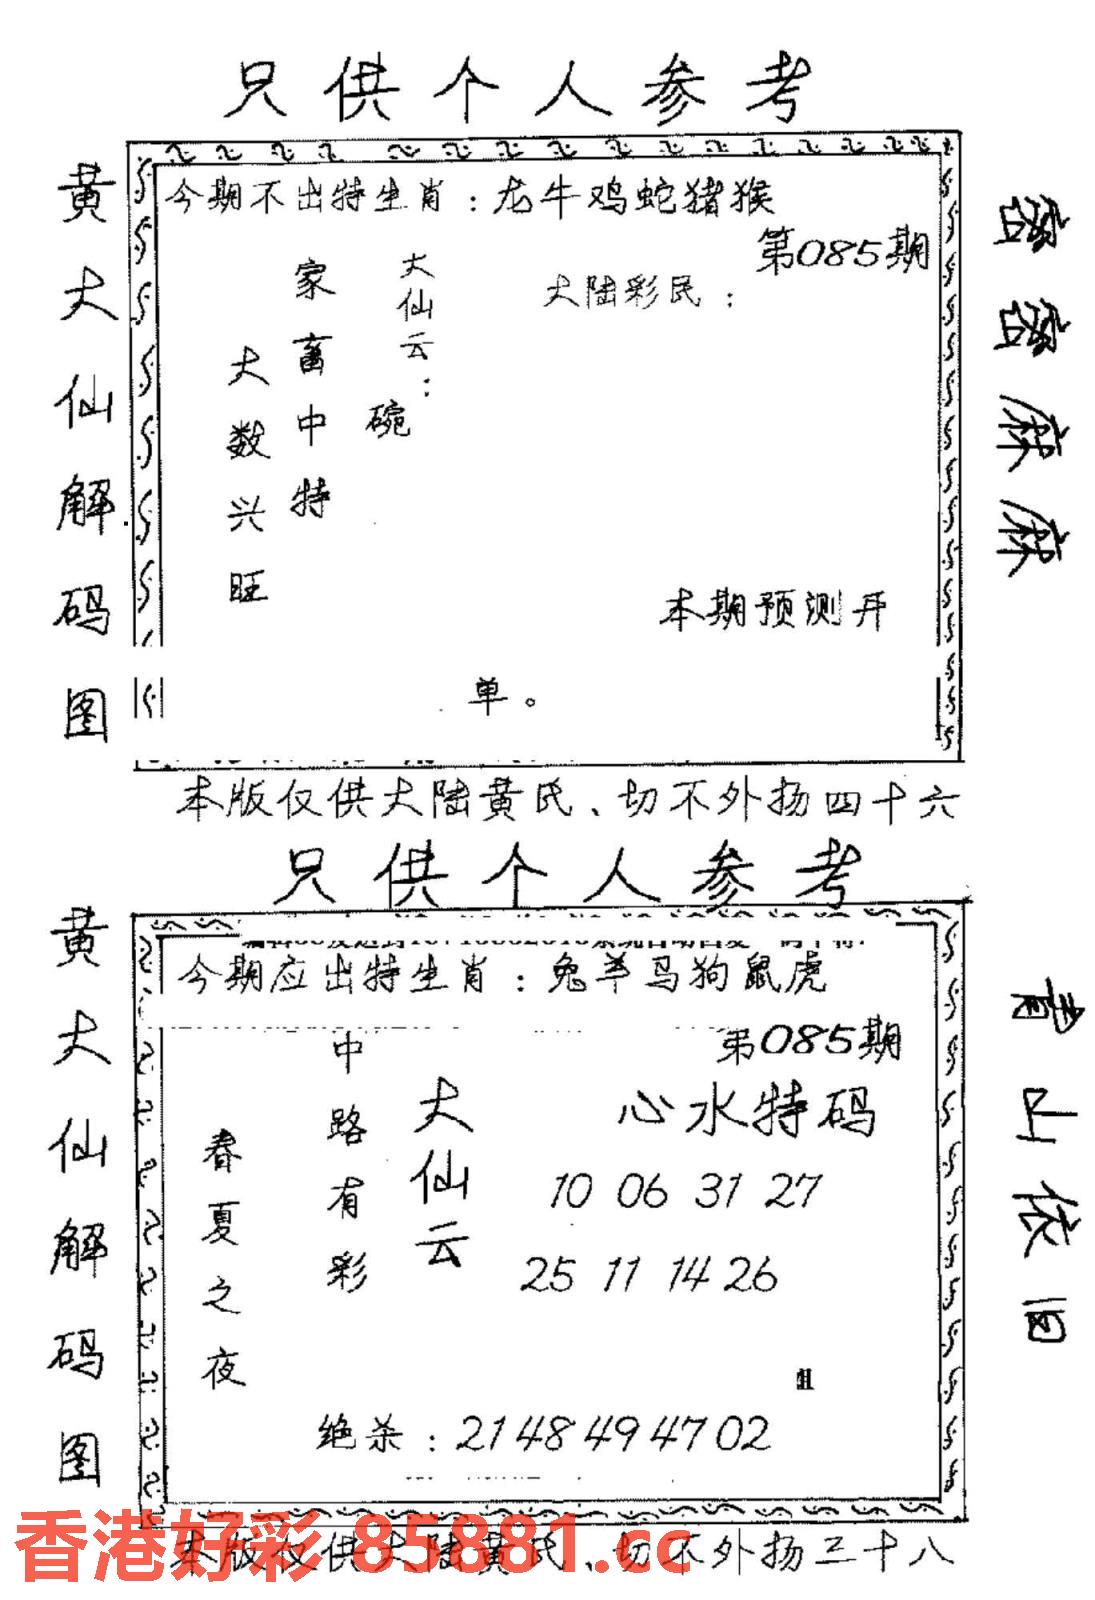 只供个人参考
黄大仙解码图
今期不出特生肖：龙牛鸡蛇猪猴
第085期
大陆彩民：
大仙云：
碗
家畜中特
大数兴旺
本期预测开
单。
密密麻麻
本版仅供大陆黄氏、切不外扬四十六
只供个人参考
黄大仙解码图
今期应出特生肖：兔羊马狗鼠虎
第085期
心水特码
10 06 31 27
25 11 14 26
大仙云
中路有彩
春夏之夜
绝杀：21 48 49 47 02
青山依旧
本版仅供大陆黄氏、切不外扬三十八
香港好彩 85881.cc